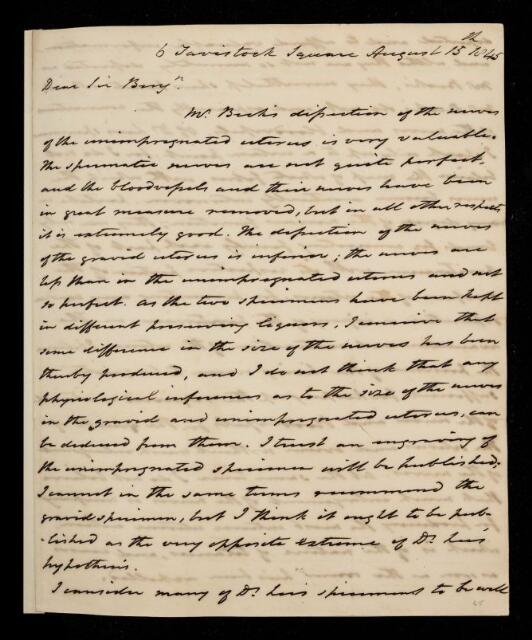 6 Tavistock Square August 15th 1845
Dear Sir Benjn.
Mr. Beck's dissection of the nerves
of the unimpregnated uterus is very valuable.
The spermatic nerves are not quite perfect,
and the bloodvessels and their nerves have been
in great measure removed, but in all other respects
it is extremely good. The dissection of the nerves
of the gravid uterus is inferior; the nerves are
less than in the unimpregnated uterus and not
so perfect. As the two specimens have been kept
in different preserving liquors, I conceive that
some difference in the size of the nerves has been
thereby produced, and I do not think that any
physiological inferences as to the size of the nerves
in the gravid and unimpregnated uterus, can
be deduced from them. I trust an engraving of
the unimpregnated specimen will be published.
I cannot in the same terms recommend the
gravid specimen, but I think it ought to be pub-
-lished as the very opposite extreme of Dr. Lee's
hypothesis.
I consider many of Dr. Lee's specimens to be well